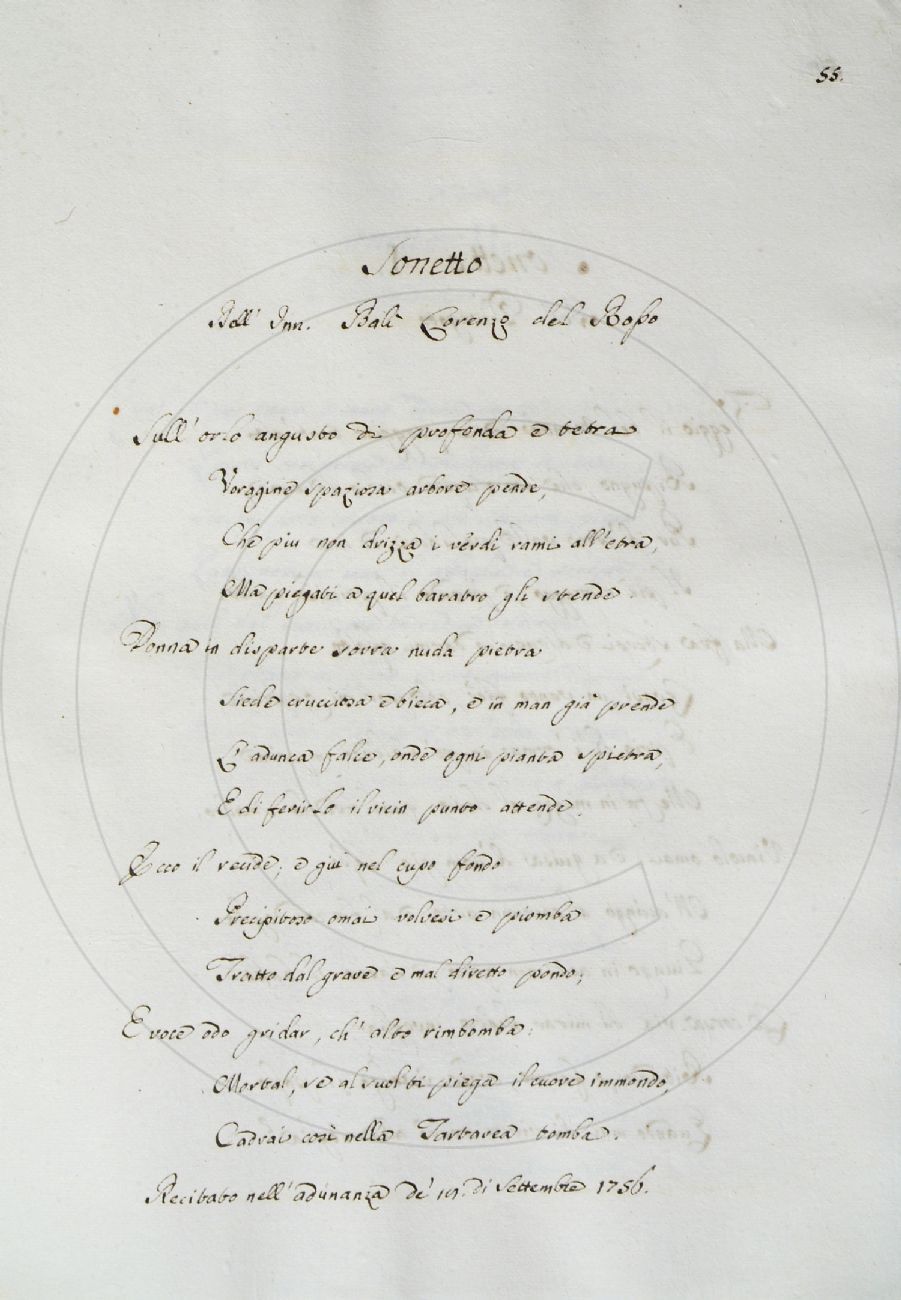 55.
Sonetto
Dell' Inn. Balì Lorenzo del Rosso
Sull' orlo angusto di profonda e tetra
Voragine spaziosa arbore pende,
Che piu non drizza i verdi rami all' etra,
Ma piegati a quel baratro gli stende.
Donna in disparte sovra nuda pietra
Siede crucciosa e bieca, e in man già prende
L' adunca falce, onde ogni pianta spietra,
E di ferirlo il vicin punto attende.
Ecco il recide; e giù nel cupo fondo
Precipitoso omai volvesi e piomba
Tratto dal grave e mal diretto pondo;
E voce odo gridar, ch' alto rimbomba:
Mortal, se al suol ti piega il cuore immondo,
Cadrai così nella Tartarea tomba.
Recitato nell' adunanza de' 19. di Settembre 1756.